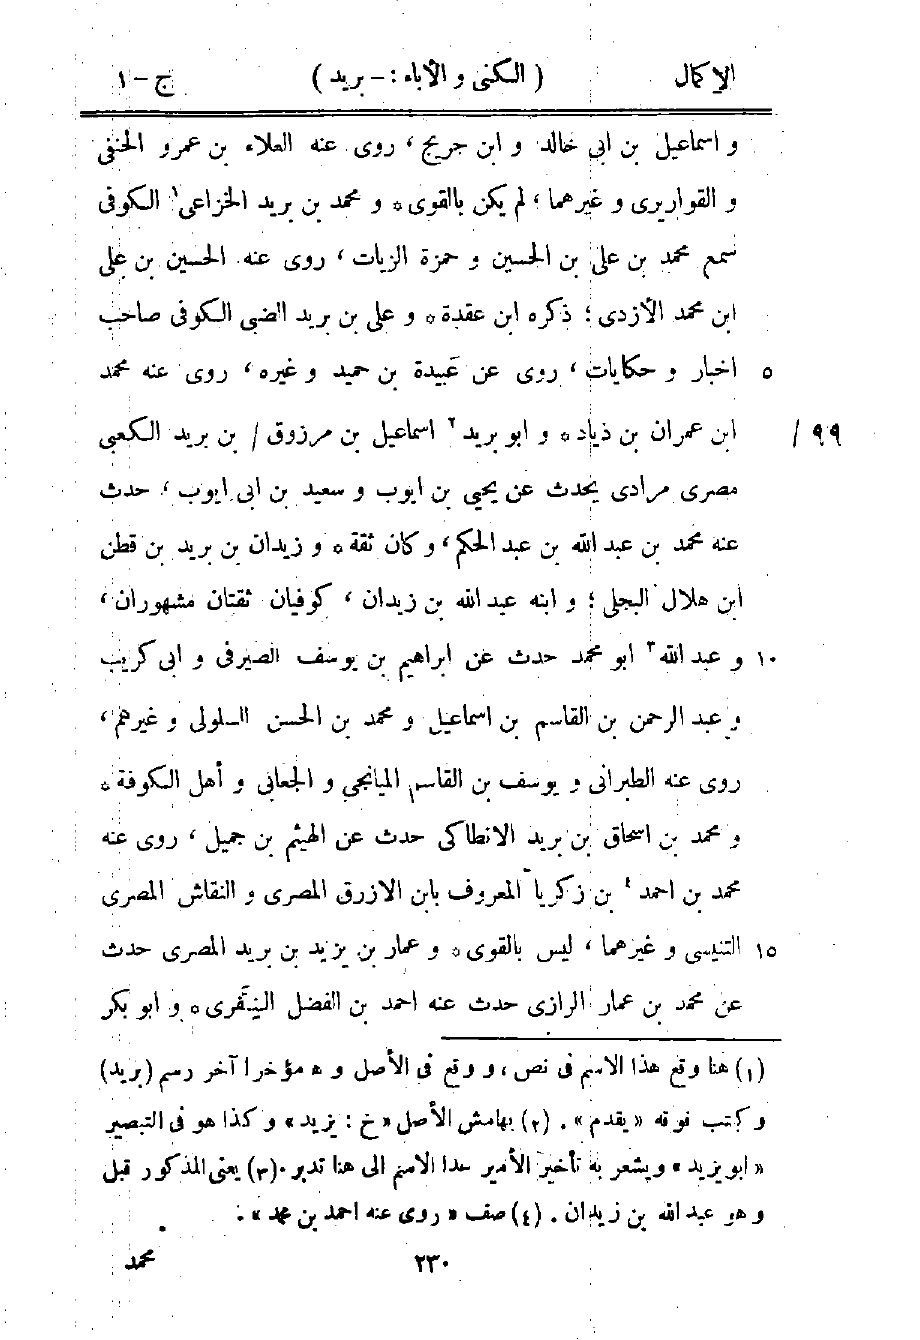 الاكمال ( الكنى و الأباء : - بريد ) ج - ١
و اسماعيل بن ابى خالد و ابن جريج ، روى عنه العلاء بن عمرو الحنفى
و القواريرى و غيرهما ، لم يكن بالقوى * و محمد بن بريد الخزاعى ١ الكوفى
سمع محمد بن على بن الحسين و حمزة الزيات ، روى عنه الحسين بن على
ابن محمد الأزدى ؛ ذكره ابن عقدة * و على بن بريد الضبى الكوفى صاحب
٥ اخبار و حكايات ، روى عن عَبيدة بن حميد و غيره ، روى عنه محمد
٩٩ / ابن عمران بن ذياد * و ابو بريد ٢ اسماعيل بن مرزوق / بن بريد الكعبى
مصرى مرادى يحدث عن يحيى بن ايوب و سعيد بن ابى ايوب ، حدث
عنه محمد بن عبد الله بن عبد الحكم ، و كان ثقة * و زيدان بن بريد بن قطن
ابن هلال البجلى ؛ و ابنه عبد الله بن زيدان ، كوفيان ثقتان مشهوران ،
١٠ و عبد الله ٣ ابو محمد حدث عن ابراهيم بن يوسف الصيرفى و ابى كريب
و عبد الرحمن بن القاسم بن اسماعيل و محمد بن الحسن السلولى و غيرهم ،
روى عنه الطبرانى و يوسف بن القاسم الميانجى و الجعابى و أهل الكوفة *
و محمد بن اسحاق بن بريد الانطاكى حدث عن الهيثم بن جميل ، روى عنه
محمد بن احمد ٤ بن زكريا المعروف بابن الازرق المصرى و النقاش المصرى
١٥ التنيسى و غيرهما ، ليس بالقوى * و عمار بن يزيد بن بريد المصرى حدث
عن محمد بن عمار الرازى حدث عنه احمد بن الفضل النِّفَّرى * و ابو بكر
(١) هنا وقع هذا الاسم فى نص ، و وقع فى الأصل و ه مؤخرا آخر رسم (بريد)
و كتب فوقه « يقدم » . (٢) بهامش الأصل « خ : يزيد » و كذا هو فى التبصير
« ابو يزيد » و يشعر به تأخير الأمير هذا الاسم الى هنا تدبر . (٣) يعنى المذكور قبل
و هو عبد الله بن زيدان . (٤) صف « روى عنه احمد بن محمد » .
٢٣٠ محمد